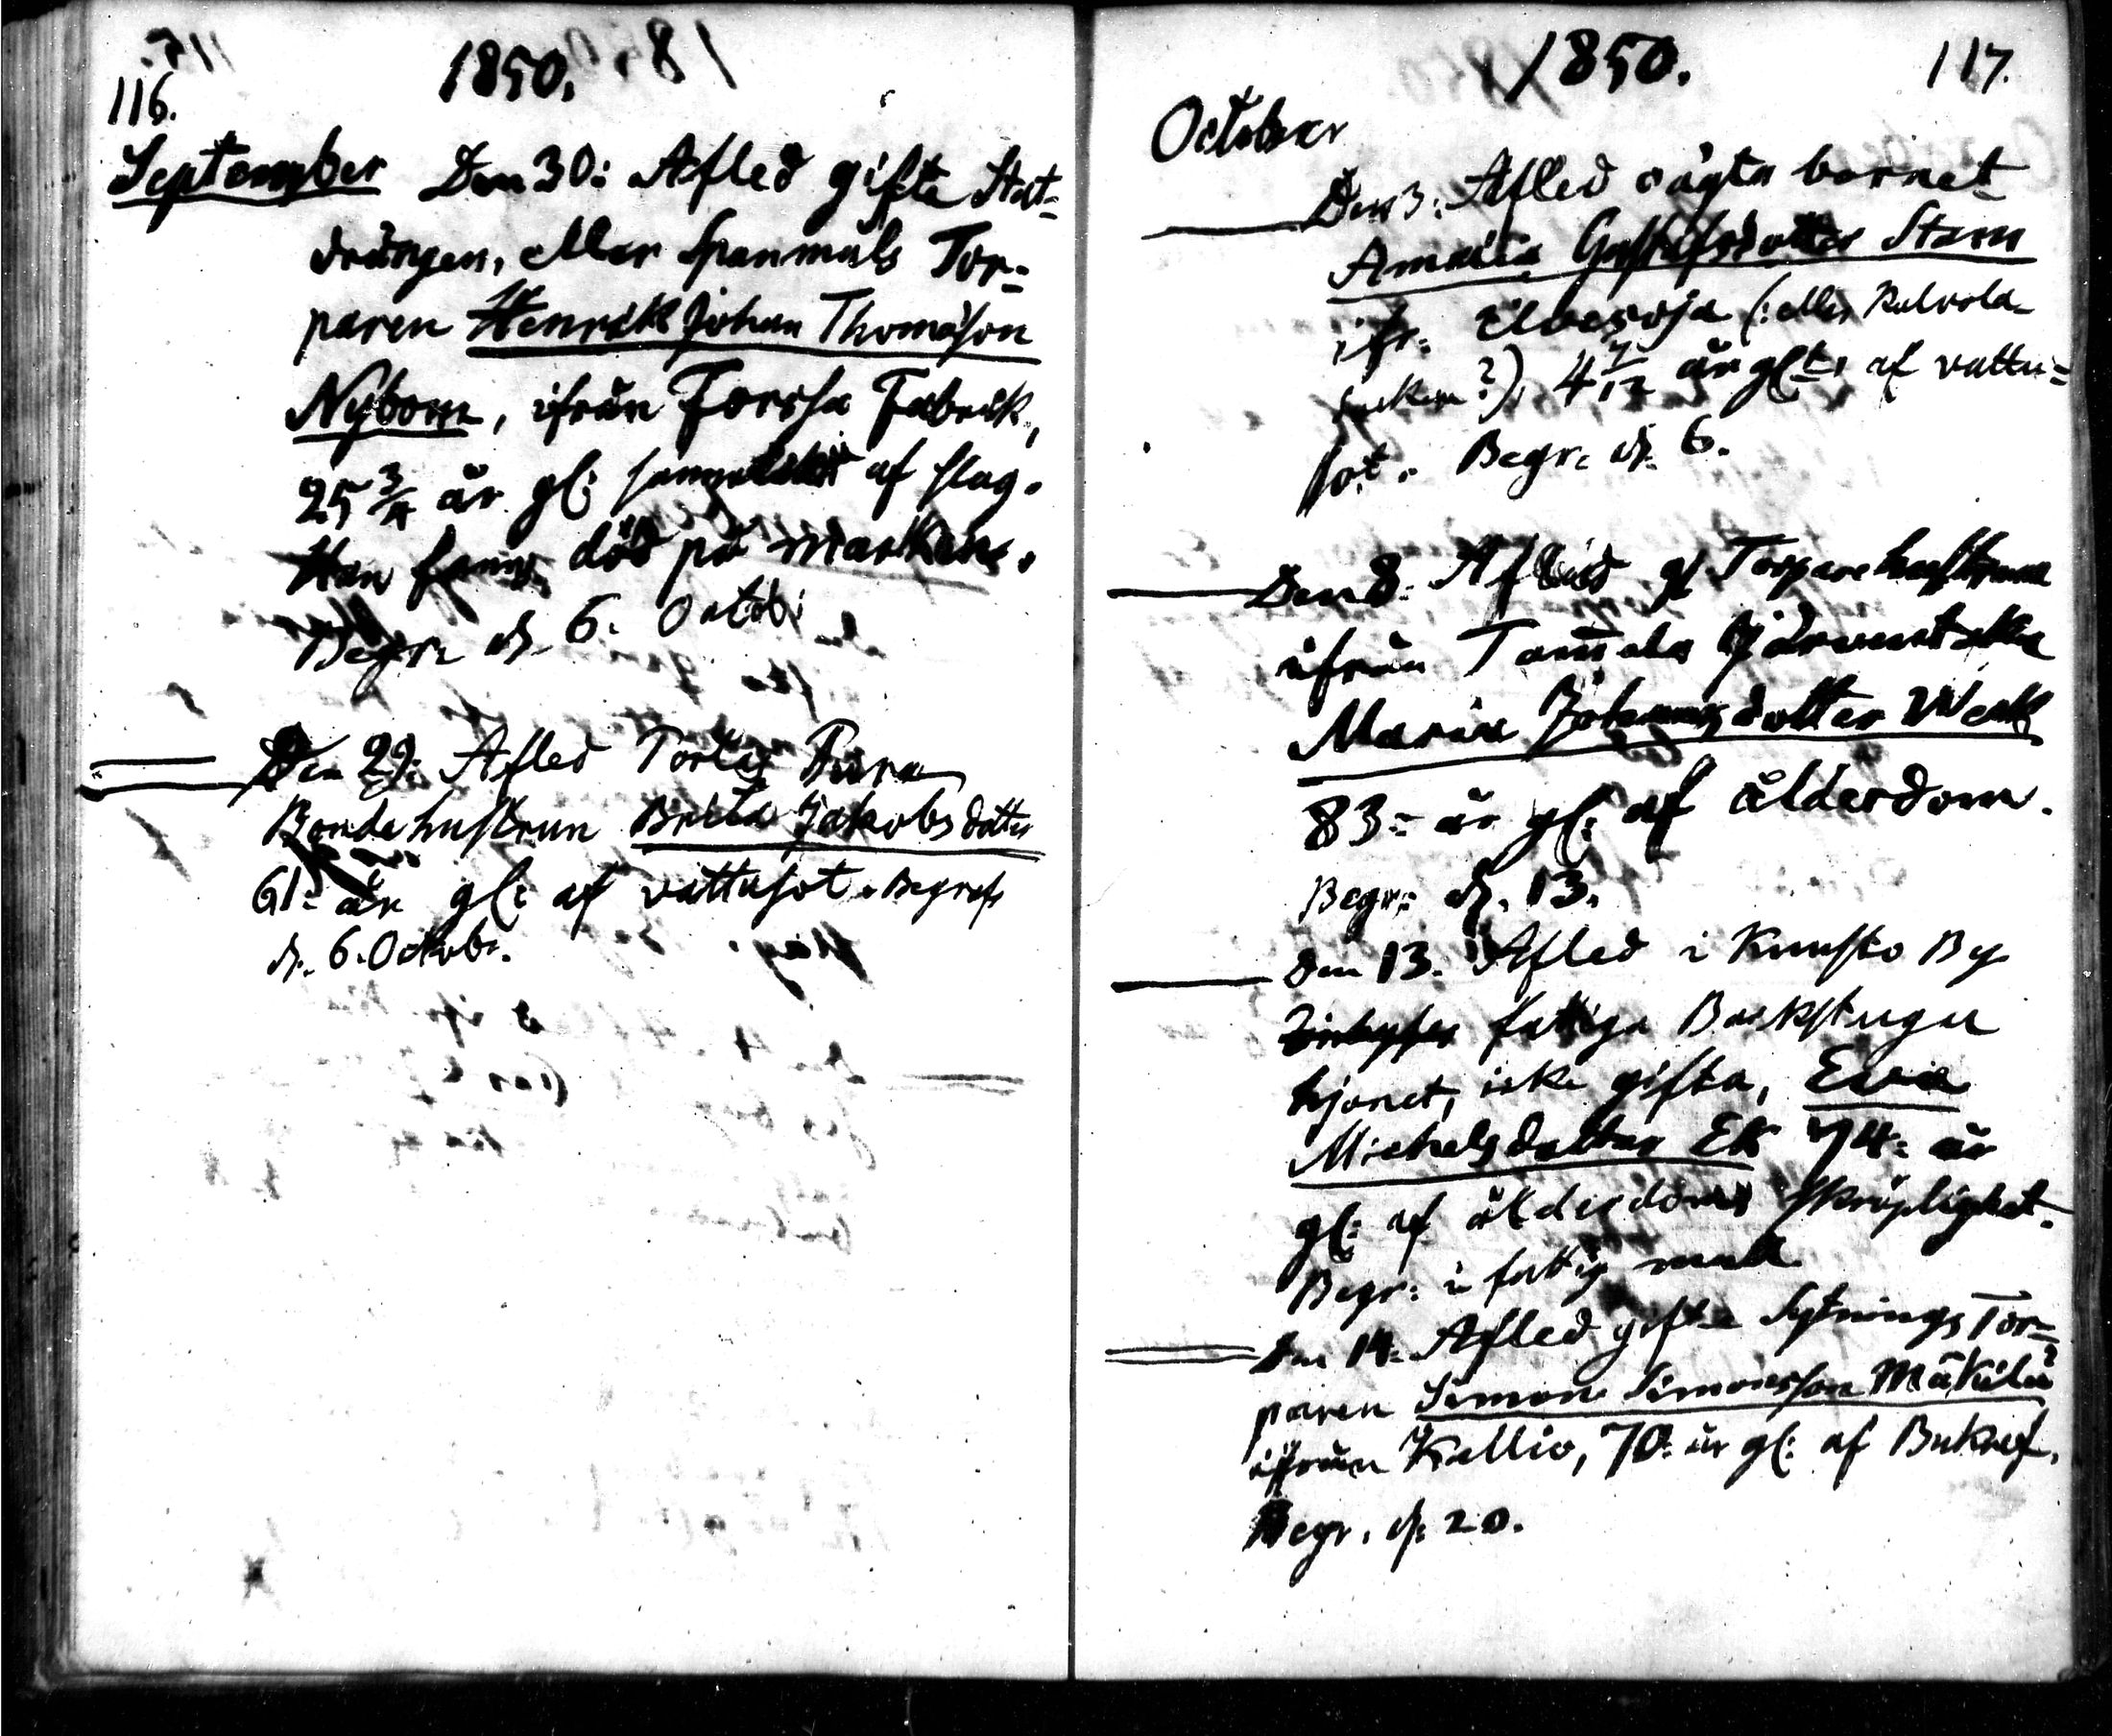 116.
1850.
September Den 30: Afled gifta Stat-
drängen, eller Spanmåls Tor-
paren Henrik Johan Thomasson
Nybom, ifrån Forssa Fabrik,
25 3/4 år gl: af slag.
Han fanns död på marken.
Begr: d. 6. Octob:
Den 29: Afled Bonde
Bondehustrun Brita Jakobsdotter
61: år gl: af vattusot. Begrofs
d. 6. Octob:
1850. 117.
October
Den 3: Afled oägta barnet
Amalia Gustafsdotter Stam
ifr: (: eller
?), 4 7/12 år glt: af vattu-
sot. Begr: d. 6.
Den 8: Afled gl Torparehustrun
ifrån Tammela
Maria Johannsdotter Werk
83: år gl: af ålderdom.
Begr: d. 13.
Den 13: Afled i Kuusto By
fattiga Backstugu
hjonet, icke gifta, Eva
Michelsdotter Ek 74: år
gl: af ålderdoms skröplighet.
Begr: i fattig
Den 14: Afled gifta Sytnings Tor-
paren Simon Simonsson Mäkilä
ifrån Kallio, 70: år gl: af Bukref.
Begr. d: 20.